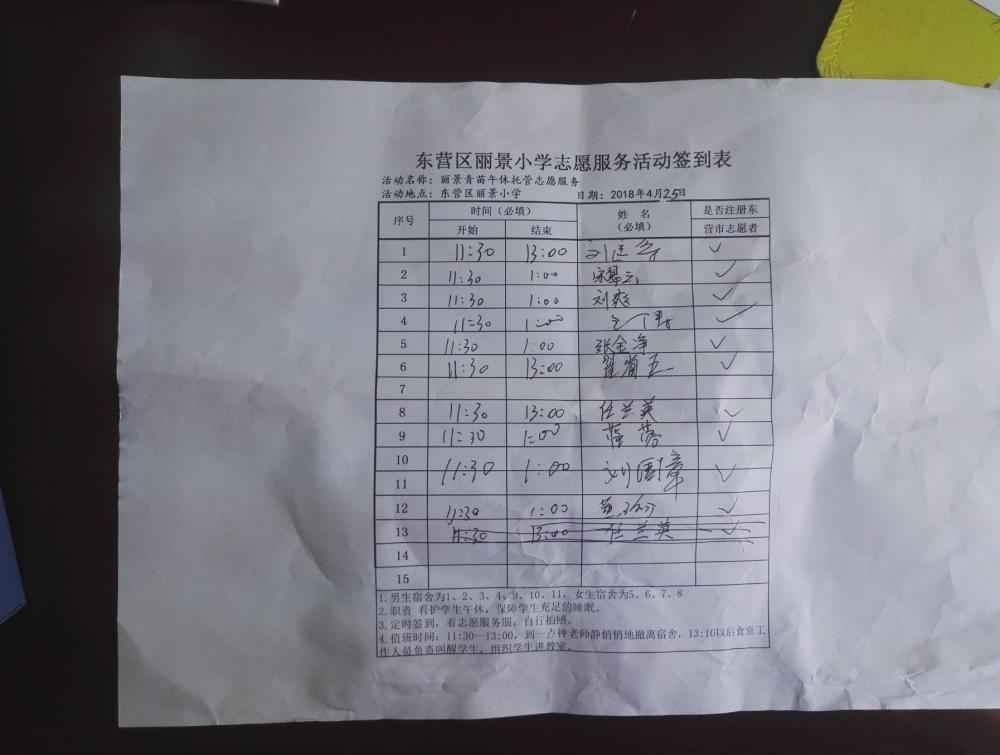 东营区丽景小学志愿服务活动签到表
活动名称：丽景青苗午休托管志愿服务
活动地点：东营区丽景小学 日期：2018年4月25日
序号 时间（必填） 姓名（必填） 是否注册东营市志愿者
开始 结束
1 11:30 13:00 ✓
2 11:30 1:00 ✓
3 11:30 1:00 刘爽 ✓
4 11:30 1:00 ✓
5 11:30 1:00 张金净 ✓
6 11:30 13:00 ✓
7
8 11:30 13:00 任兰英 ✓
9 11:30 1:00 ✓
10
11 11:30 1:00 刘国章 ✓
12 11:30 1:00 ✓
13 11:30 13:00 任兰英 ✓
14
15
1. 男生宿舍为1、2、3、4、9、10、11，女生宿舍为5、6、7、8
2. 职责 看护学生午休，保障学生充足的睡眠。
3. 定时签到，着志愿服务服，自行拍照。
4. 值班时间：11:30—13:00，到一点钟老师静悄悄地撤离宿舍，13:10以后食堂工
作人员负责叫醒学生，组织学生进教室。